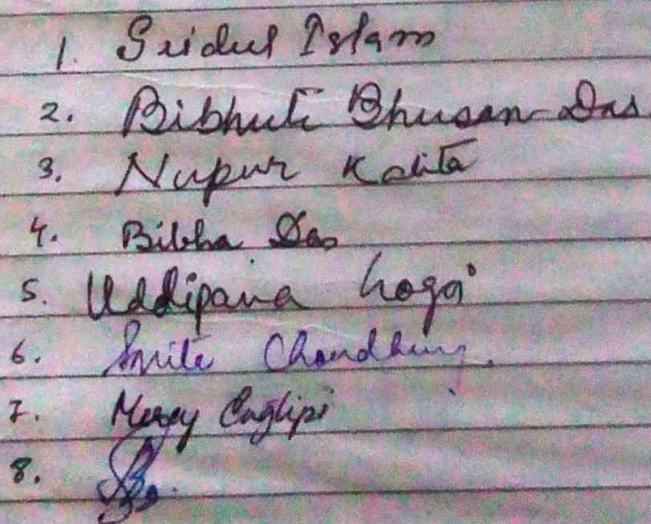 1. Sridul Islam
2. Bibhuti Bhusan Das
3. Nupur Kalita
4. Bibha Das
5. Uddipana Gogoi
6. Smita Choudhury.
7.
8.